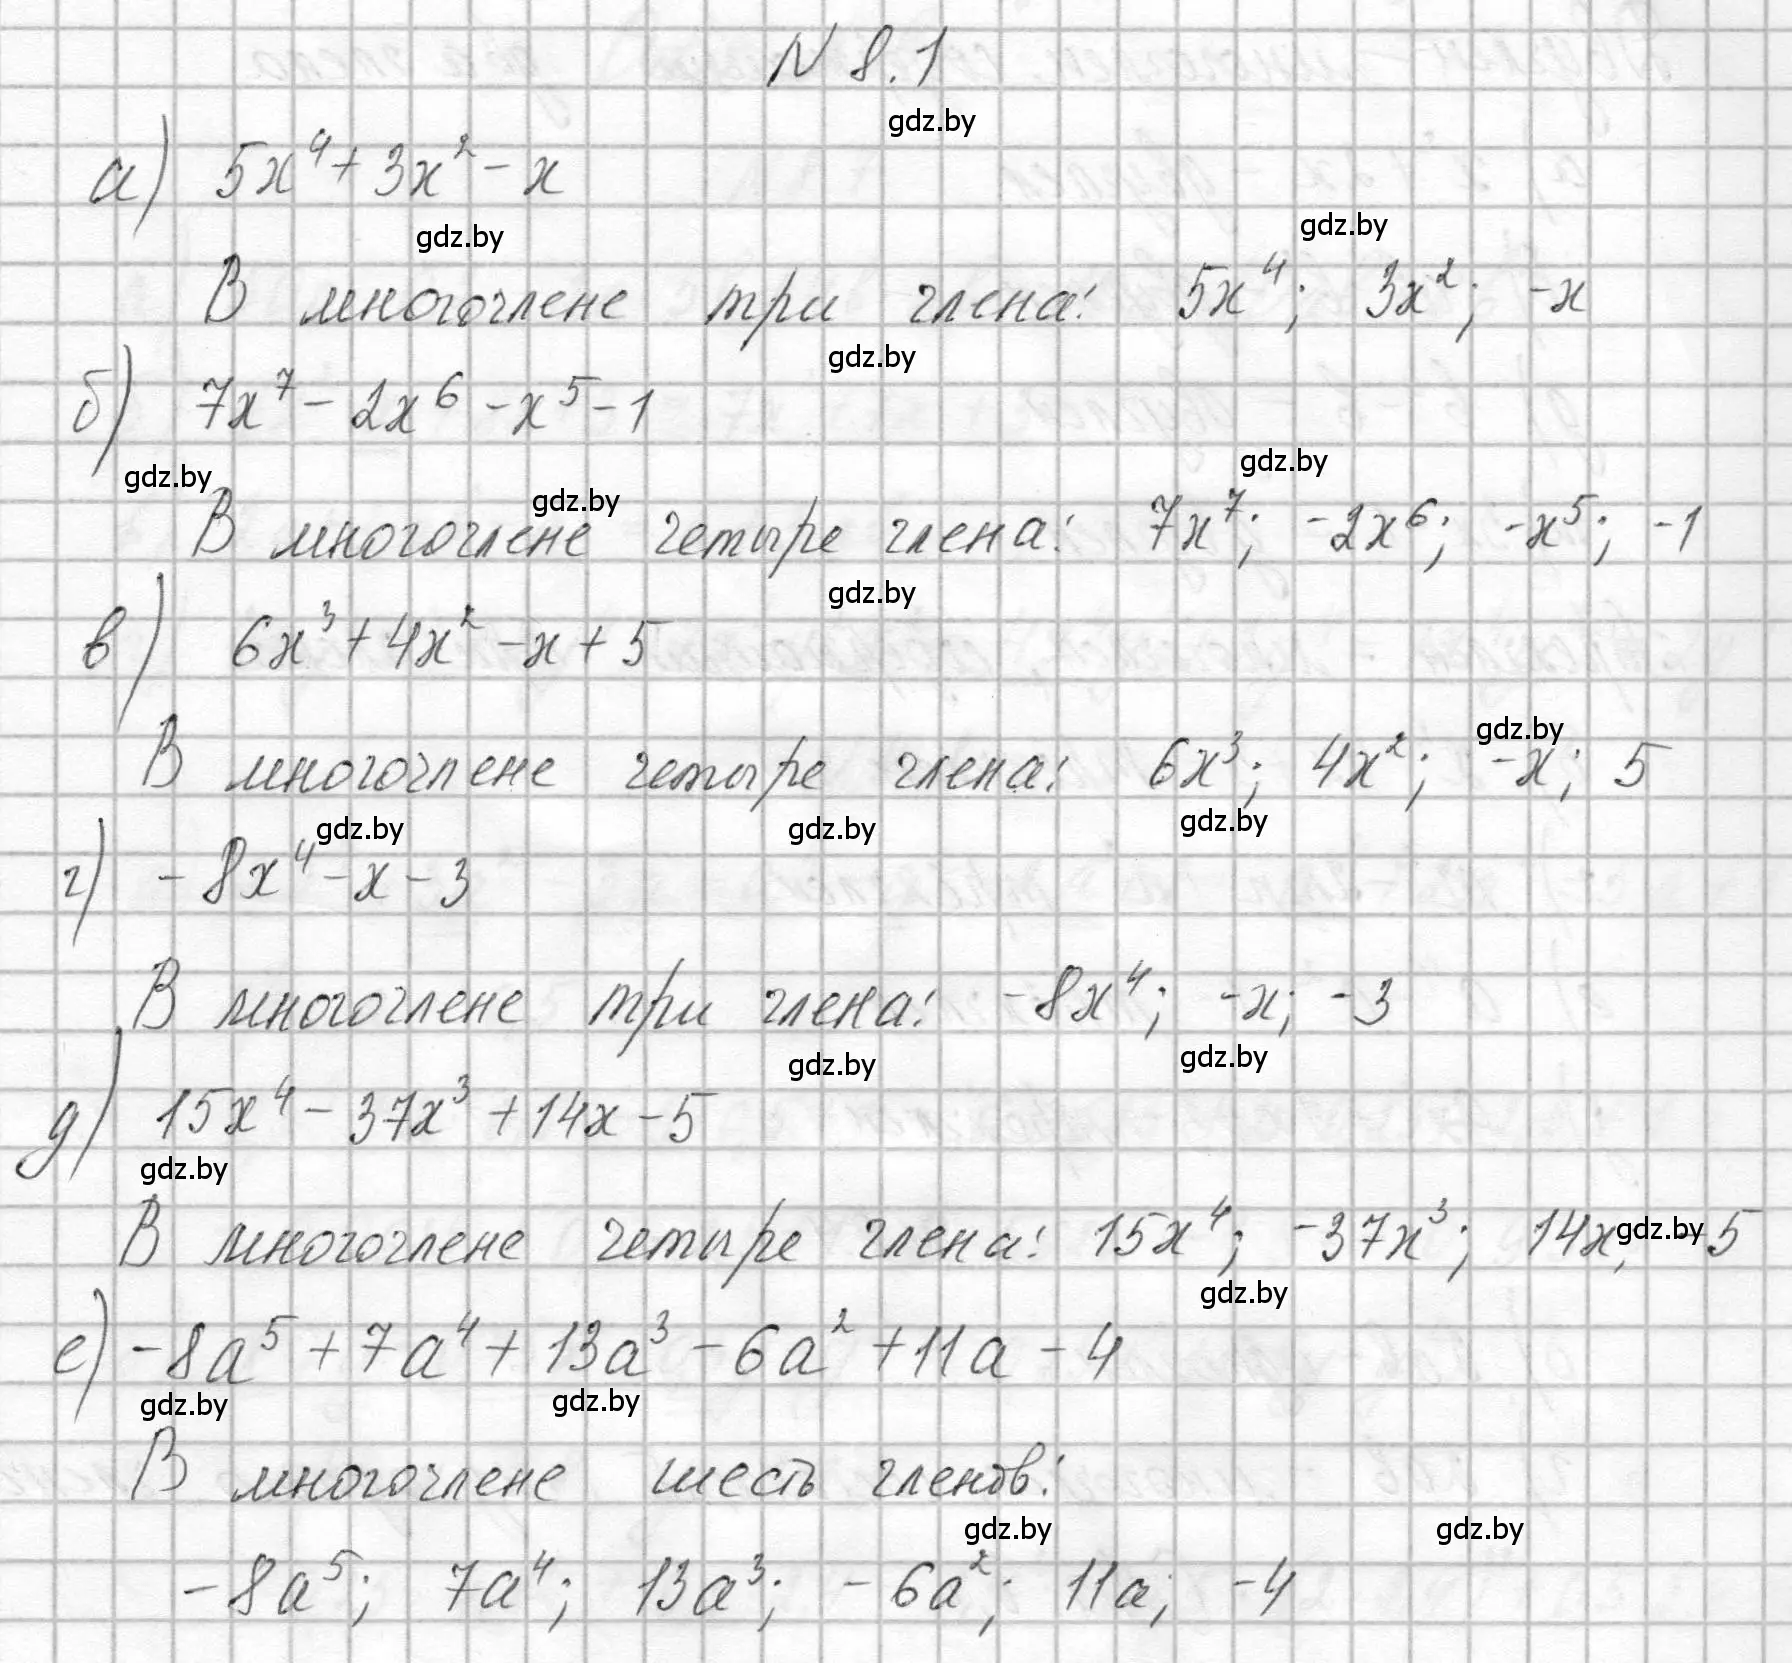 N 8.1
gdz.by
а) 5x⁴ + 3x² - x
gdz.by gdz.by
В многочлене три члена: 5x⁴; 3x²; -x
gdz.by
б) 7x⁷ - 2x⁶ - x⁵ - 1
gdz.by gdz.by gdz.by
В многочлене четыре члена: 7x⁷; -2x⁶; -x⁵; -1
gdz.by
в) 6x³ + 4x² - x + 5
gdz.by
В многочлене четыре члена: 6x³; 4x²; -x; 5
gdz.by gdz.by gdz.by
г) - 8x⁴ - x - 3
В многочлене три члена: -8x⁴; -x; -3
gdz.by gdz.by
д) 15x⁴ - 37x³ + 14x - 5
gdz.by
В многочлене четыре члена: 15x⁴; -37x³; 14x; -5
gdz.by
gdz.by
е) -8a⁵ + 7a⁴ + 13a³ - 6a² + 11a - 4
gdz.by gdz.by
В многочлене шесть членов:
gdz.by gdz.by
-8a⁵; 7a⁴; 13a³; -6a²; 11a; -4